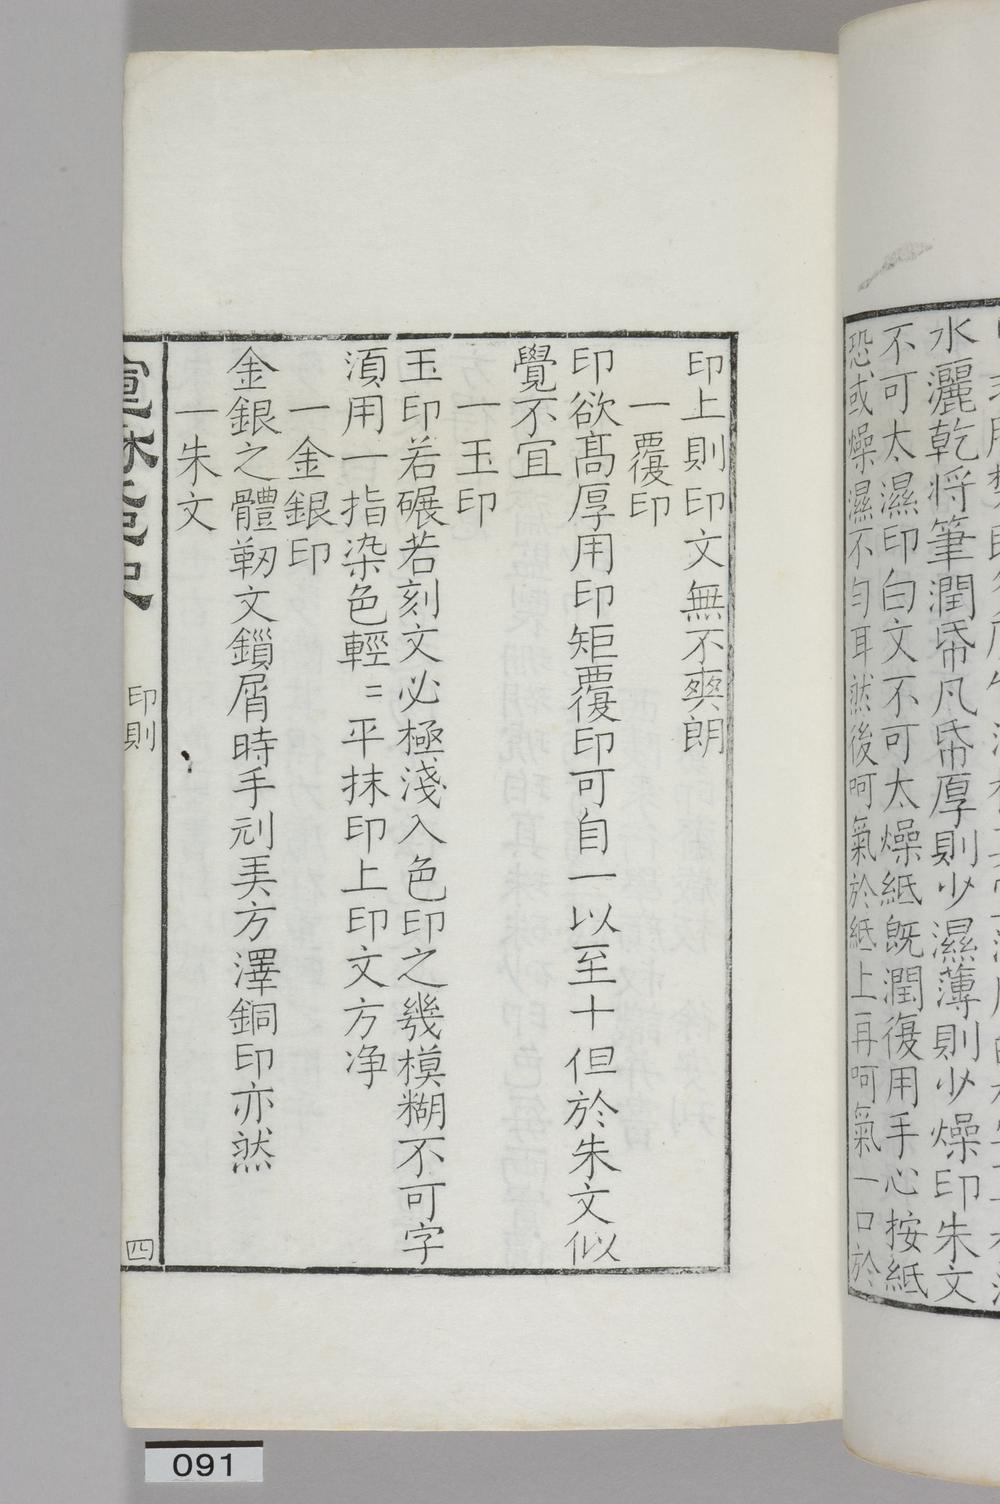 水灑乾将筆潤帋凡帋厚則少濕薄則少燥印朱文
不可太濕印白文不可太燥紙既潤復用手心按紙
恐或燥濕不勻耳然後呵氣於紙上再呵氣一口於
印上則印文無不爽朗
一覆印
印欲高厚用印矩覆印可自一以至十但於朱文似
覺不宜
一玉印
玉印若碾若刻文必極淺入色印之幾模糊不可字
須用一指染色輕〻平抹印上印文方净
一金銀印
金銀之體韌文鎻屑時手刓美方澤銅印亦然
一朱文
印則
四
091